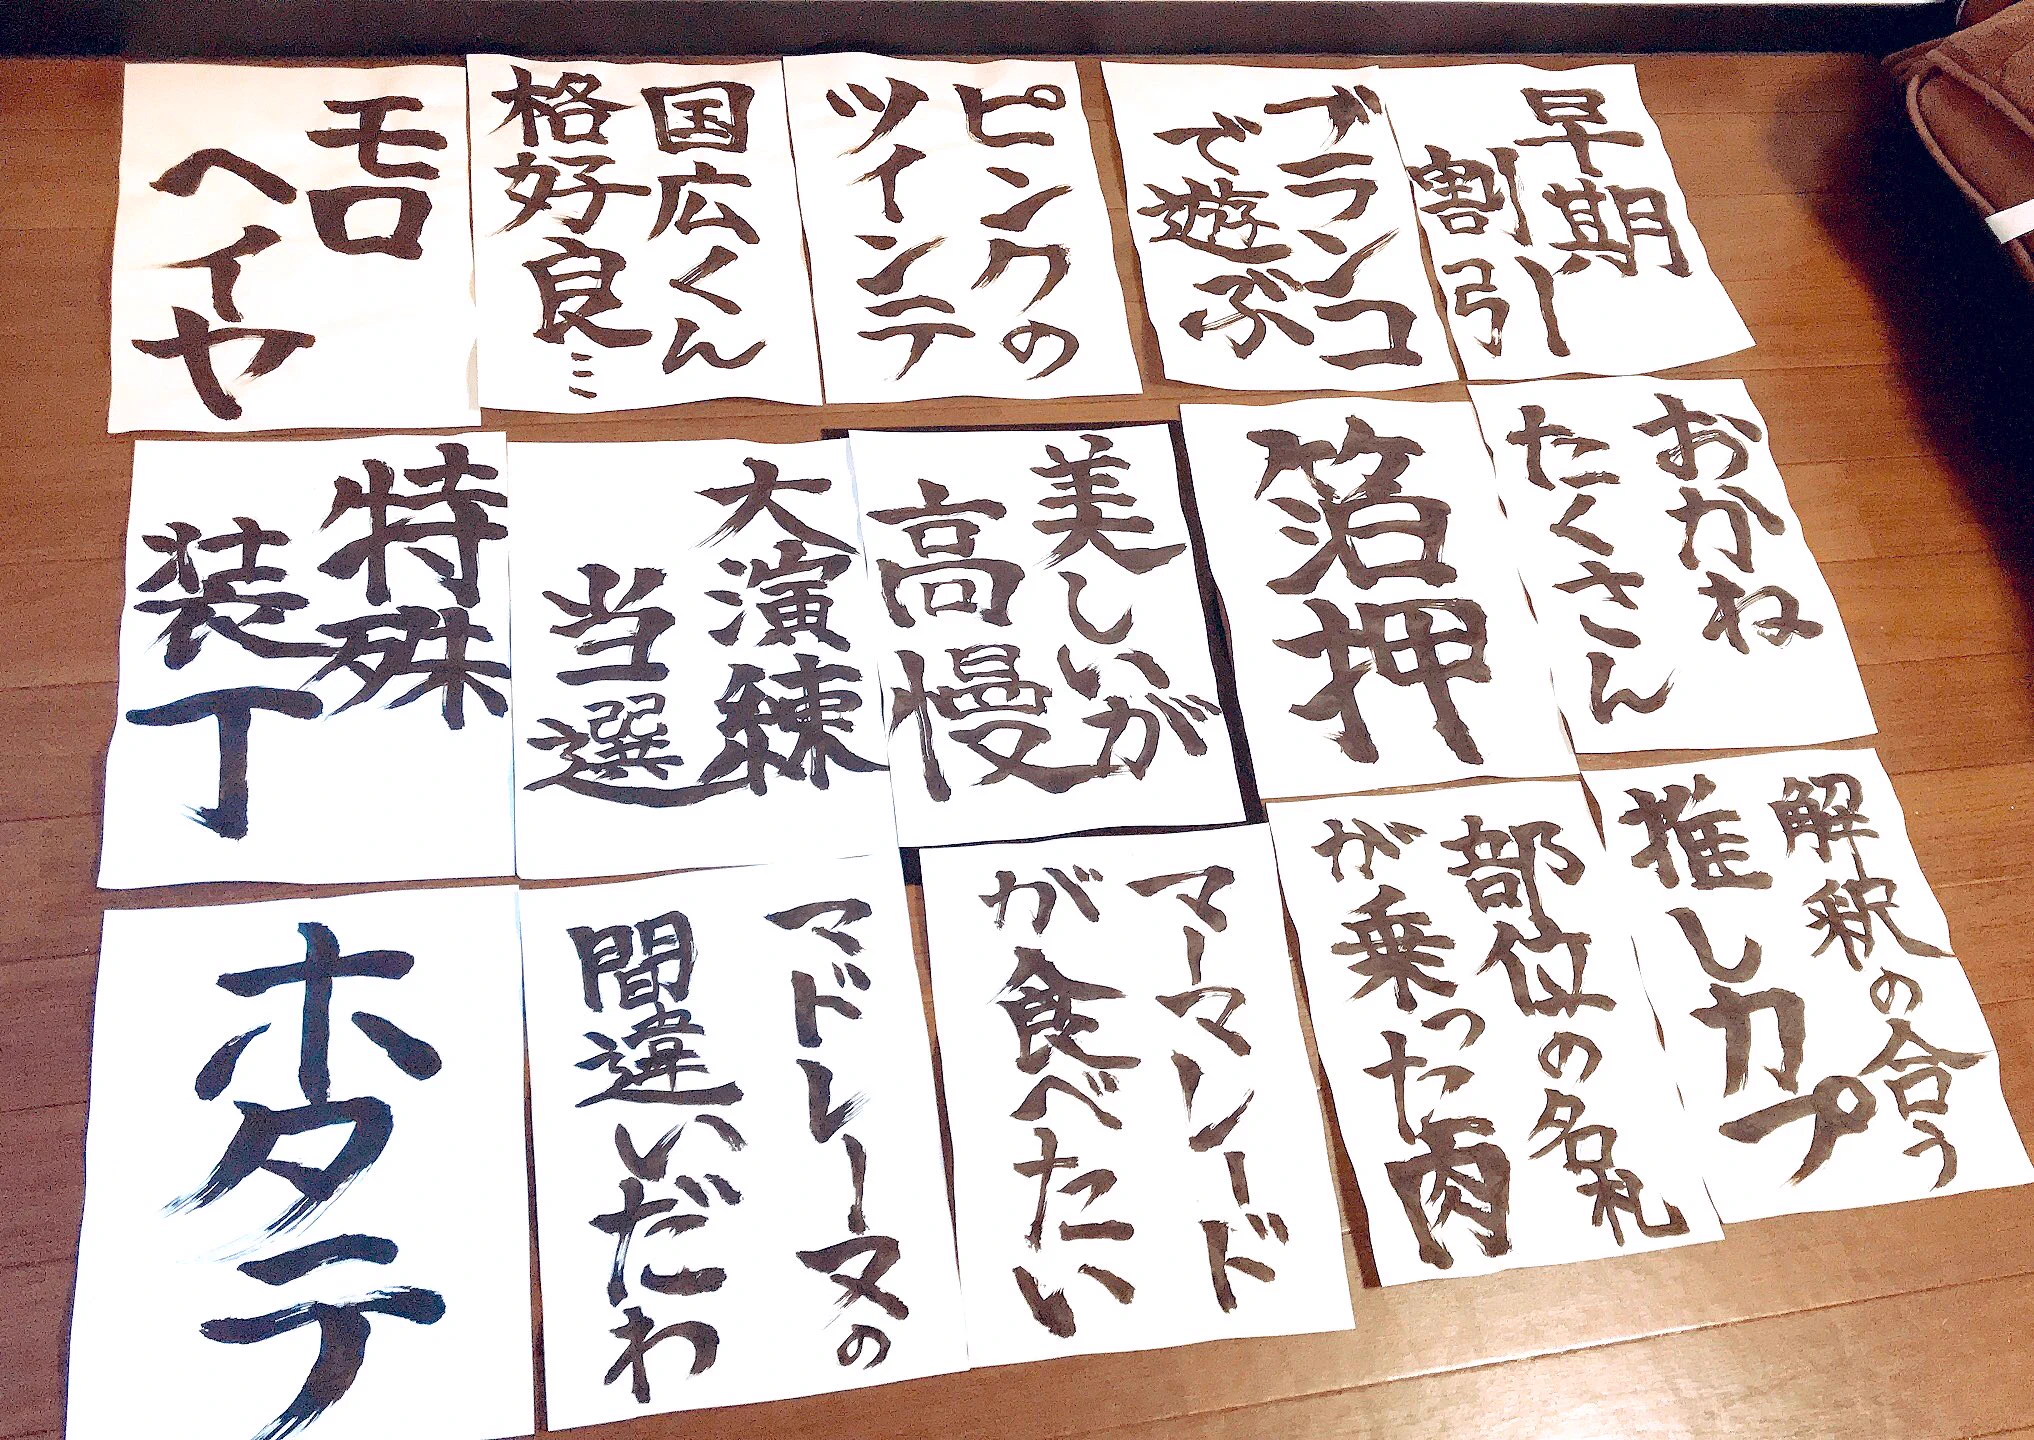 早期
割引
ブランコ
で遊ぶ
ピンクの
ツインテ
国広くん
格好良…
モロ
ヘイヤ
おかね
たくさん
箔押
美しいが
高慢
大演練
当選
特殊
装丁
解釈の合う
推しカプ
部位の名札
が乗った肉
マーマレード
が食べたい
マドレーヌの
間違いだわ
ホタテ